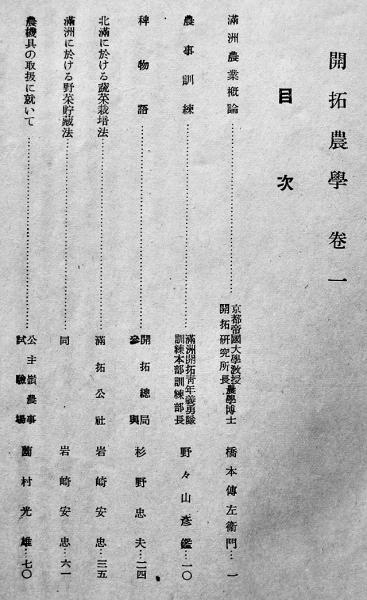 開拓農學 卷一
目次
滿洲農業槪論……京都帝國大學敎授農學博士 開拓硏究所長 橋本傳左衞門…一
農事訓練……滿洲開拓靑年義勇隊 訓練本部訓練部長 野々山彥鑑…一〇
稗物語……開拓總局 參與 杉野忠夫…二四
北滿に於ける蔬菜栽培法……滿拓公社 岩崎安忠…三五
滿洲に於ける野菜貯藏法……同 岩崎安忠…六一
農機具の取扱に就いて……公主嶺農事 試驗場 村光雄…七〇